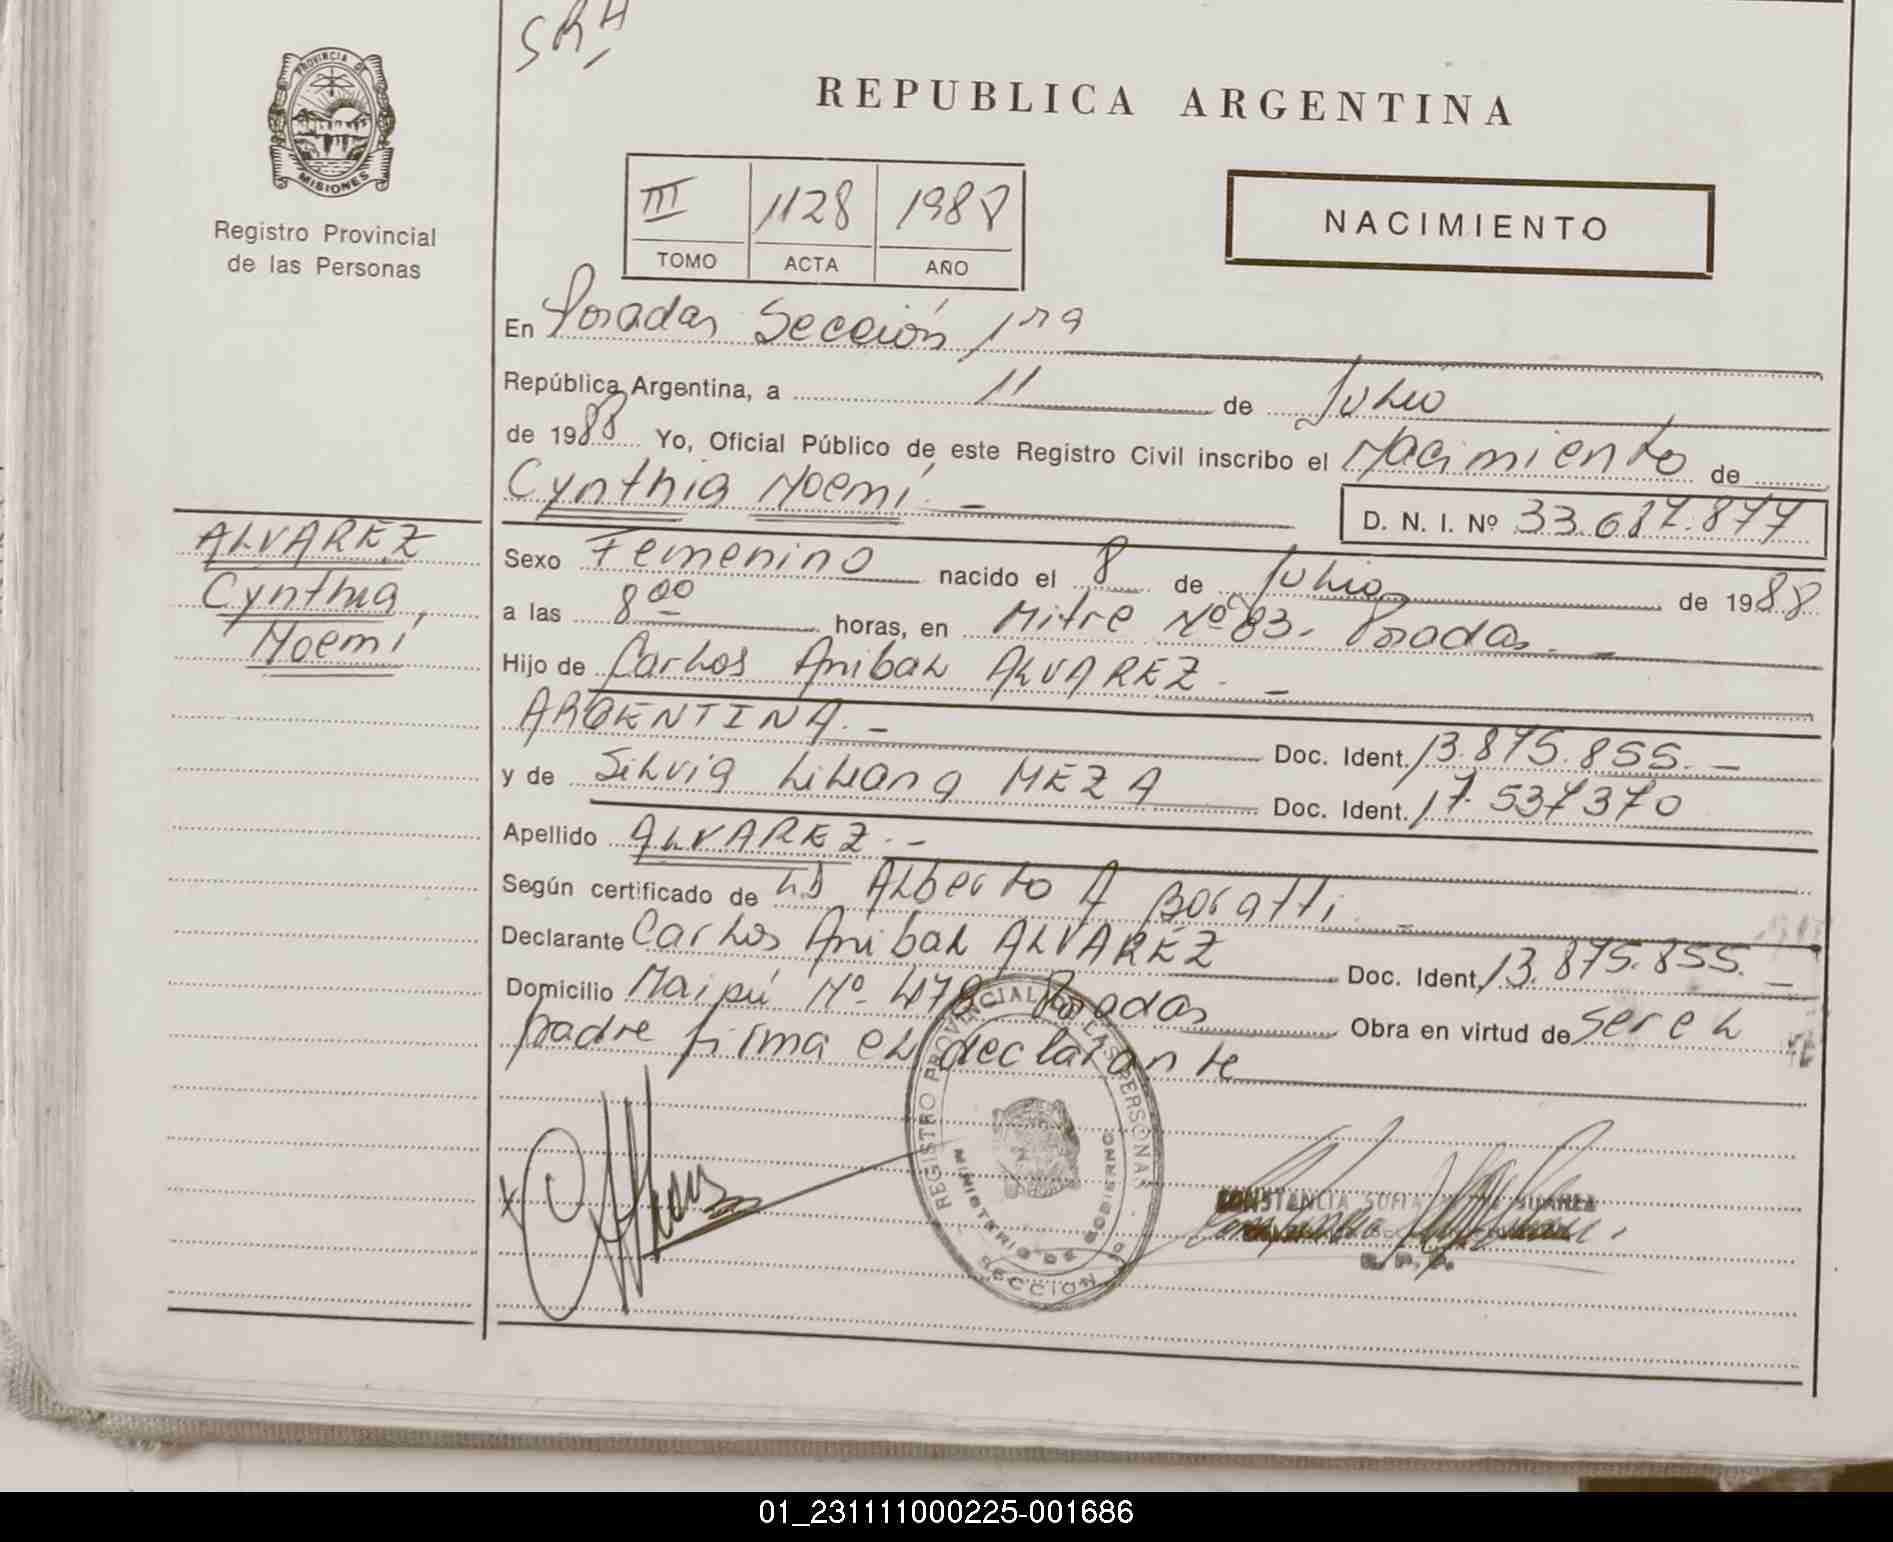 SRA
PROVINCIA DE
MISIONES
Registro Provincial
de las Personas
REPUBLICA ARGENTINA
III 1128 1988
TOMO ACTA AÑO
NACIMIENTO
En Posadas Sección 1ra
República Argentina, a 11 de Julio
de 1988 Yo, Oficial Público de este Registro Civil inscribo el Nacimiento de
Cynthia Noemí.-
D. N. I. Nº 33.687.877
ALVAREZ
Cynthia
Noemí
Sexo Femenino nacido el 8 de Julio de 1988
a las 8 00 horas, en Mitre Nº 83. Posadas.-
Hijo de Carlos Anibal ALVAREZ.-
ARGENTINA.- Doc. Ident. 13.875.855.-
y de Silvia Liliana MEZA Doc. Ident. 17.537370
Apellido ALVAREZ.-
Según certificado de Alberto A Boratti.-
Declarante Carlos Anibal ALVAREZ Doc. Ident. 13.875.855.-
Domicilio Maipú Nº 478 Posadas Obra en virtud de ser el
padre firma el declarante
REGISTRO PROVINCIAL DE LAS PERSONAS
MINISTERIO DE GOBIERNO
SECCION
CONSTANCIA SOFIA SUAREZ
R. P. P.
01_231111000225-001686